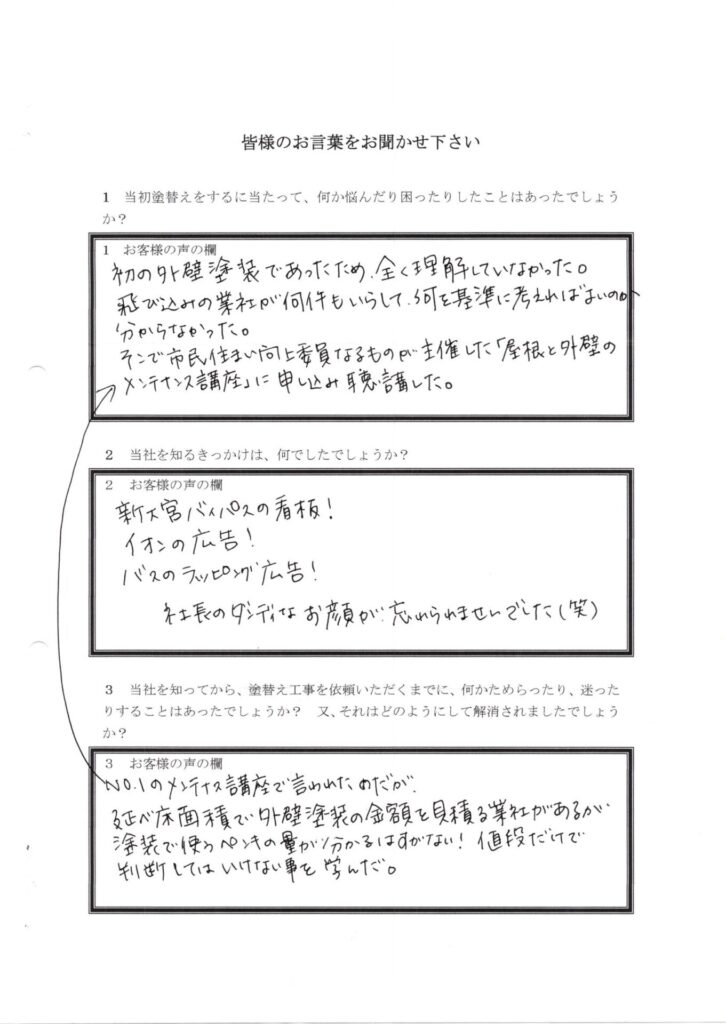 皆様のお言葉をお聞かせ下さい
1 当初塗替えをするに当たって、何か悩んだり困ったりしたことはあったでしょう
か?
1 お客様の声の欄
初の外壁塗装であったため、全く理解していなかった。
飛び込みの業社が何件もいらして、何を基準に考えればよいのか
分からなかった。
そこで市民住まい向上委員なるものが主催した「屋根と外壁の
メンテナンス講座」に申し込み聴講した。
2 当社を知るきっかけは、何でしたでしょうか?
2 お客様の声の欄
新大宮バイパスの看板!
イオンの広告!
バスのラッピング広告!
社長のダンディなお顔が忘れられませんでした(笑)
3 当社を知ってから、塗替え工事を依頼いただくまでに、何かためらったり、迷った
りすることはあったでしょうか? 又、それはどのようにして解消されましたでしょう
か?
3 お客様の声の欄
NO.1のメンテナス講座で言われたのだが、
延べ床面積で外壁塗装の金額を見積る業社があるが
塗装で使うペンキの量が分かるはずがない! 値段だけで
判断してはいけない事を学んだ。